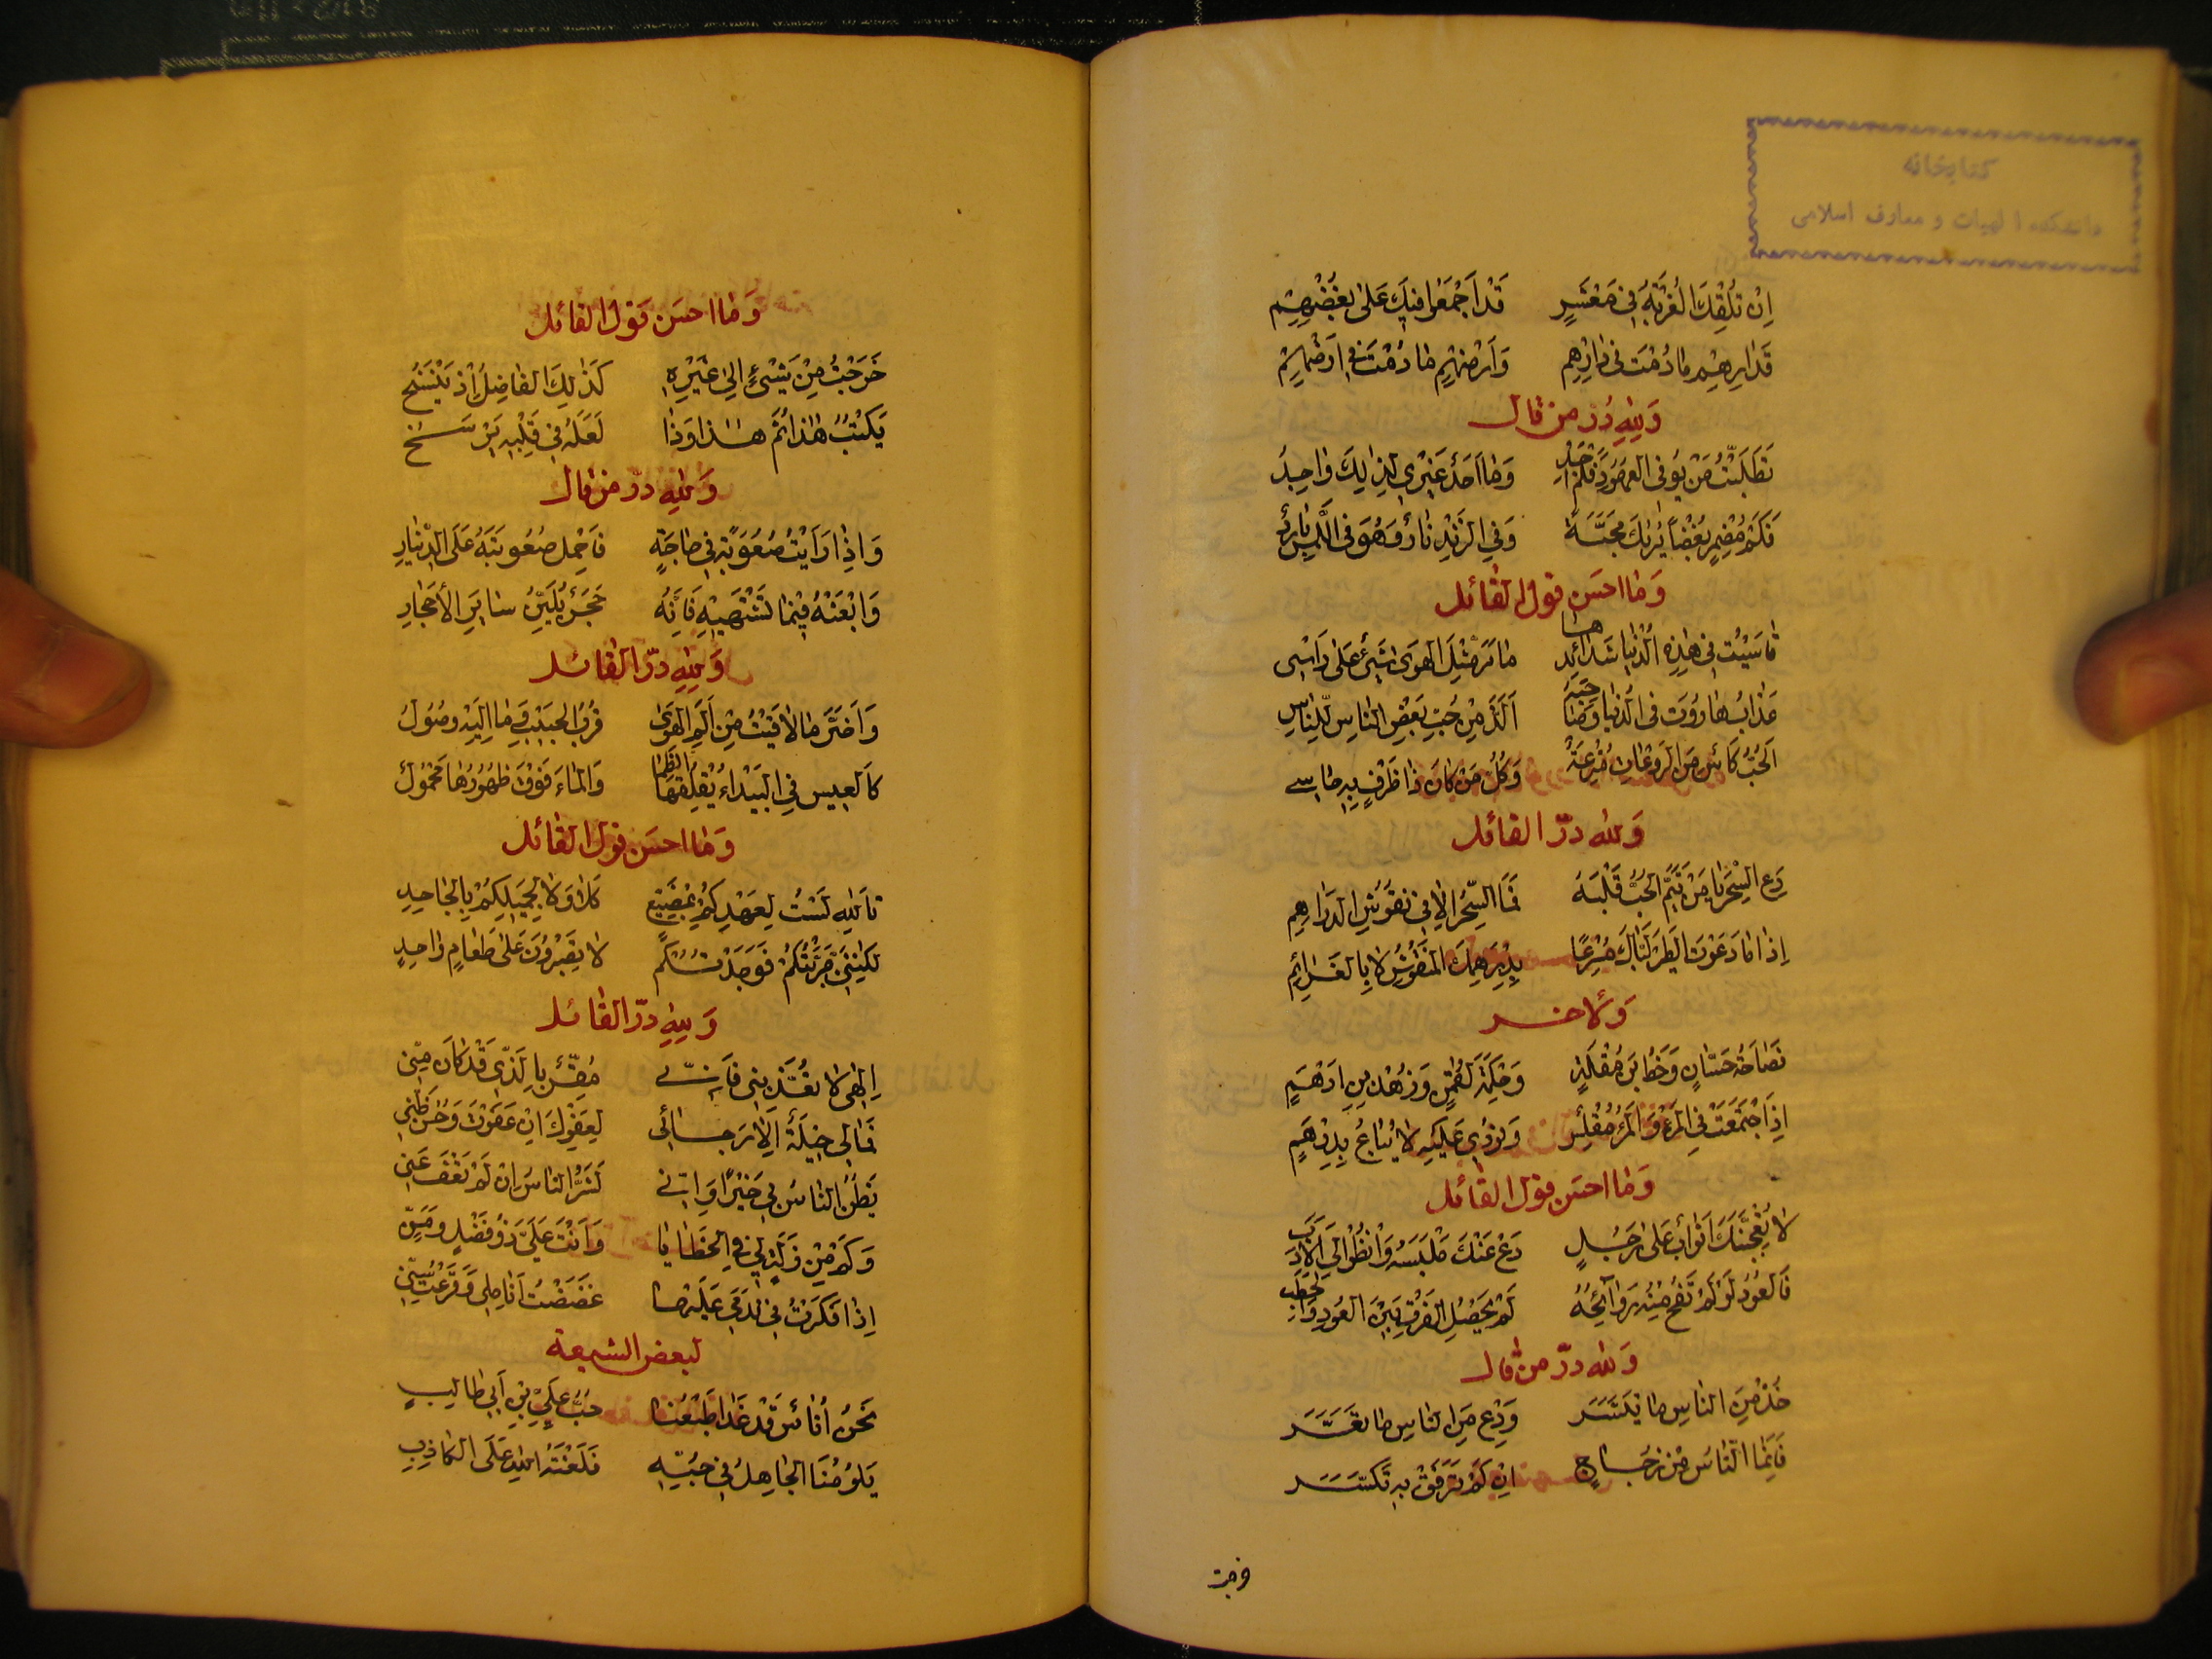 كتابخانه
دانشكده الهيات و معارف اسلامى
اِنْ تُلْقِكَ الْغُرْبَةُ فِى مَعْشَرٍ قَدْ اَجْمَعُوا فِيكَ عَلى بُغْضِهِمْ
فَدَارِهِمْ مَا دُمْتَ فِى دَارِهِمْ وَاَرْضِهِمْ مَا دُمْتَ فِى اَرْضِهِمْ
وَلِلّٰهِ دُرّ من قال
تَطَلَّبْتُ مَنْ يُوفِى الْعُهُودَ فَلَمْ اَجِدْ وَمَا اَحَدٌ غَيْرِى لِذٰلِكَ وَاجِدُ
فَكَمْ مُضْمِرٍ بُغْضًا يُرِيكَ مَحَبَّةً وَفِى الزَّنْدِ نَارٌ وَهُوَ فِى اللَّمْسِ بَارِدُ
وَمَا احسَن قول القائل
قَاسَيْتُ فِى هٰذِهِ الدُّنْيَا شَدَائِدَهَا مَا مَرَّ مِثْلُ الْهَوَى شَىْءٌ عَلى رَاسِى
عَذَابُ هَارُوتَ فِى الدُّنْيَا وَصَاحِبِهِ اَلَذُّ مِنْ حُبِّ بَعْضِ النَّاسِ لِلنَّاسِ
اَلْحُبُّ كَأْسٌ مِنَ الرَّوْعَاتِ مُتْرَعَةٌ وَكُلُّ مَنْ كَانَ ذَا ظَرْفٍ بِهِ حَاسِے
وَلله درّ القائل
دَعِ السِّحْرَ يَا مَنْ تَيَّمَ الْحُبُّ قَلْبَهُ فَمَا السِّحْرُ اِلَّا فِى نُقُوشِ الدَّرَاهِمِ
اِذَا مَا دَعَوْتَ الطَّيْرَ لَبَّاكَ مُسْرِعًا بِدِرْهَمِكَ الْمَنْقُوشِ لَا بِالْعَزَائِمِ
وَلآخر
فَصَاحَةُ حَسَّانٍ وَخَطُّ بْنِ مُقْلَةٍ وَحِكْمَةُ لُقْمٰنٍ وَزُهْدُ بْنِ اَدْهَمٍ
اِذَا اجْتَمَعَتْ فِى الْمَرْءِ وَالْمَرْءُ مُفْلِسٌ وَنُودِى عَلَيْهِ لَا يُبَاعُ بِدِرْهَمٍ
وَمَا احسَن قول القائل
لَا يُعْجِبَنَّكَ اَثْوَابٌ عَلى رَجُلٍ دَعْ عَنْكَ مَلْبَسَهُ وَانْظُرْ اِلَى الْاَدَبِ
فَالْعُودُ لَوْ لَمْ تَفُحْ مِنْهُ رَوَائِحُهُ لَمْ يَحْصُلِ الْفَرْقُ بَيْنَ الْعُودِ وَالْحَطَبِ
وَلله درّ من قال
خُذْ مِنَ النَّاسِ مَا تَيَسَّرَ وَدَعْ مِنَ النَّاسِ مَا تَعَسَّرَ
فَاِنَّمَا النَّاسُ مِنْ زُجَاجٍ اِنْ لَمْ تَرَفَّقْ بِهِ تَكَسَّرَ
وَمَا احسَن قول القائل
خَرَجْتُ مِنْ شَىْءٍ اِلى غَيْرِهِ كَذٰلِكَ الْفَاضِلُ اِذْ يَنْسَخُ
يَكْتُبُ هٰذَا ثُمَّ هٰذَا وَذَا لَعَلَّهُ فِى قَلْبِهِ يَرْسَخُ
وَلِلّٰهِ درّ من قال
وَاِذَا رَاَيْتَ صُعُوبَةً فِى حَاجَةٍ فَاحْمِلْ صُعُوبَتَهُ عَلَى الدِّينَارِ
وَابْعَثْهُ فِيمَا تَشْتَهِيهِ فَاِنَّهُ حَجَرٌ يُلَيِّنُ سَايِرَ الْاَحْجَارِ
وَلِلّٰهِ درّ القائل
وَاَضَرُّ مَا لَاقَيْتُ مِنْ اَلَمِ الْهَوى قُرْبُ الْحَبِيبِ وَمَا اِلَيْهِ وُصُولُ
كَالْعِيسِ فِى الْبَيْدَاءِ يُقْلِقُهَا الظَّمَا وَالْمَاءُ فَوْقَ ظُهُورِهَا مَحْمُولُ
وَمَا احسَن قول القائل
تَاللّٰهِ لَسْتُ لِعَهْدِكُمْ بِمُضَيِّعٍ كَلَّا وَلَا لِجَمِيلِكُمْ بِالْجَاحِدِ
لٰكِنَّنِى جَرَّبْتُكُمْ فَوَجَدْتُكُمْ لَا يَصْبِرُونَ عَلى طَعَامٍ وَاحِدٍ
وَلِلّٰهِ درّ القائل
اِلٰهِى لَا تُعَذِّبْنِى فَاِنِّے مُقِرٌّ بِالَّذِى قَدْ كَانَ مِنِّى
فَمَالِى حِيلَةٌ اِلَّا رَجَائِى لِعَفْوِكَ اِنْ عَفَوْتَ وَحُسْنُ ظَنِّى
يَظُنُّ النَّاسُ بِى خَيْرًا وَاِنِّے لَشَرُّ النَّاسِ اِنْ لَمْ تَعْفُ عَنِّى
وَكَمْ مِنْ زَلَّةٍ لِى فِى الْخَطَايَا وَاَنْتَ عَلَىَّ ذُو فَضْلٍ وَمَنِّ
اِذَا فَكَّرْتُ فِى نَدَمِى عَلَيْهَا عَضَضْتُ اَنَامِلِى وَقَرَعْتُ سِنِّى
لبعض الشيعة
نَحْنُ اُنَاسٌ قَدْ غَدَا طَبْعُنَا حُبُّ عَلِىِّ بْنِ اَبِى طَالِبٍ
يَلُومُنَا الْجَاهِلُ فِى حُبِّهِ فَلَعْنَةُ اللّٰهِ عَلَى الْكَاذِبِ